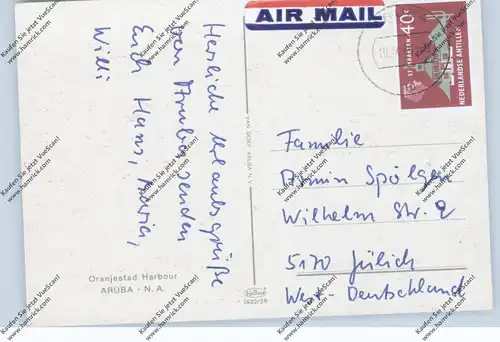 AIR MAIL
40c
ST. MAARTEN
NEDERLANDSE ANTILLEN
Herzliche Urlaubsgrüße
von Aruba senden
Euch Hans, Maria,
Willi
Familie
Armin Spölgen
Wilhelm Str. 2
5170 Jülich
West-Deutschland
VAN DORP ARUBA N.V.
Oranjestad Harbour
ARUBA - N.A.
Kaufen Sie jetzt VueScan!
www.hamrick.com